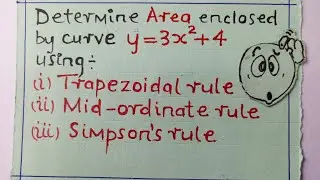 Determine Area enclosed
by curve y=3x²+4
using÷
(i) Trapezoidal rule
(ii) Mid-ordinate rule
(iii) Simpson's rule